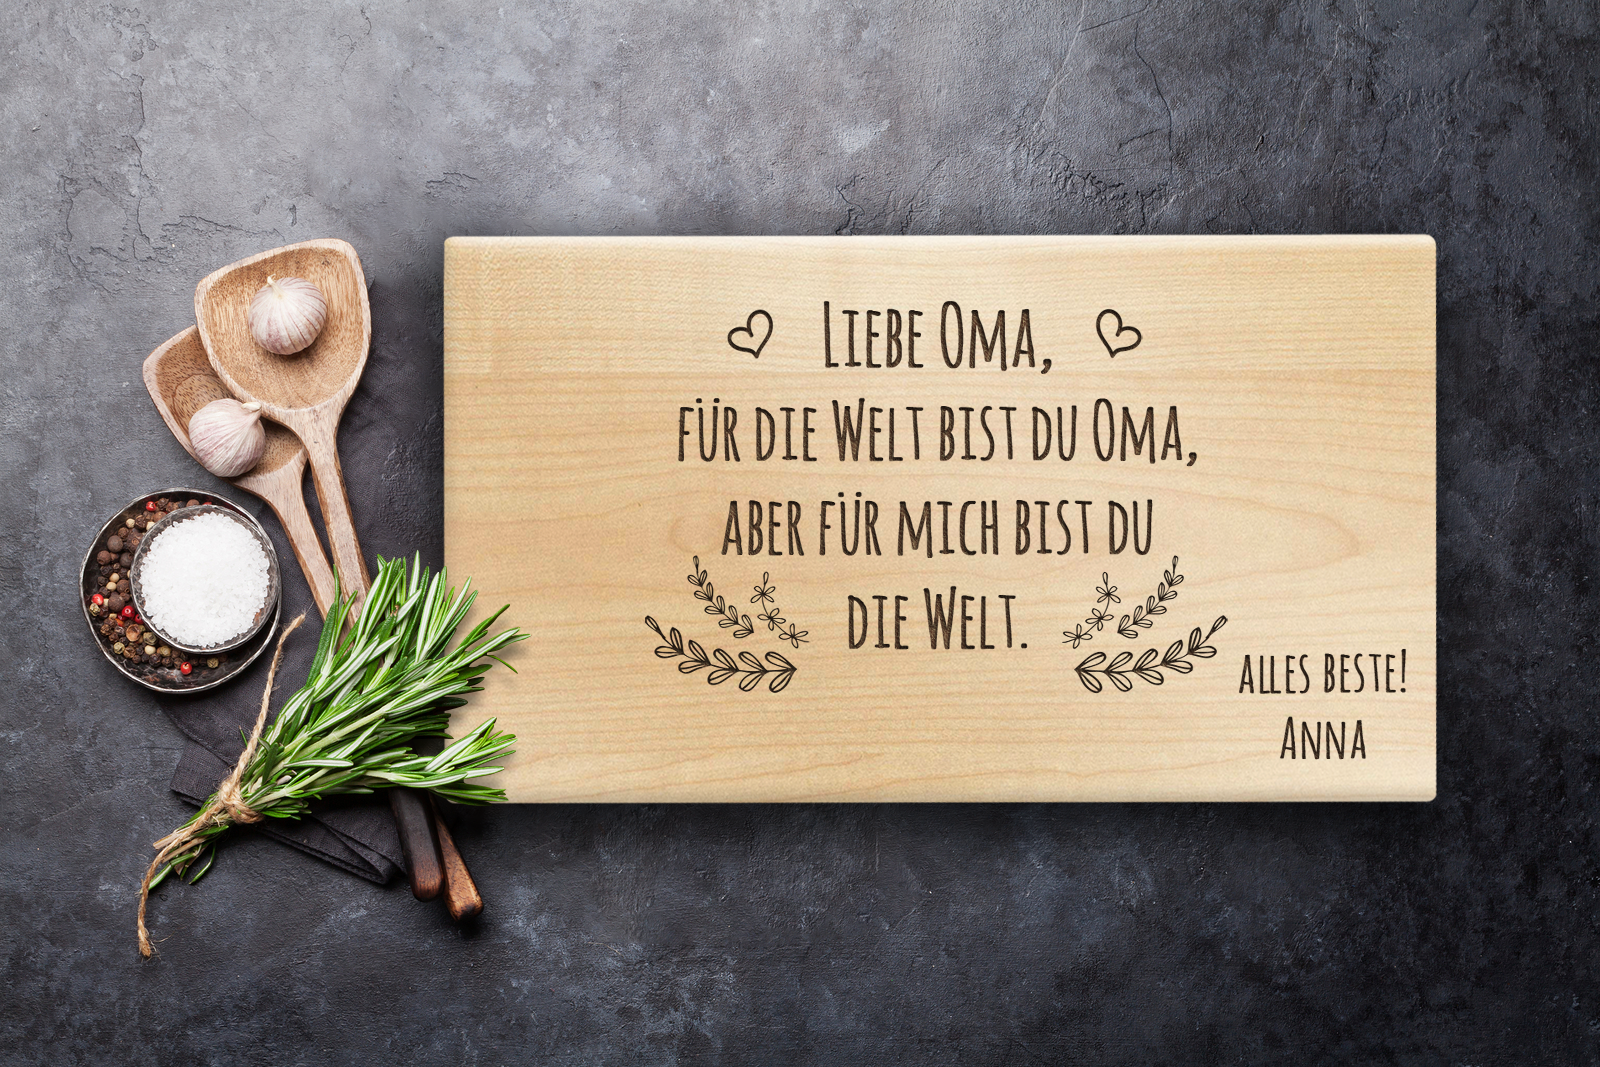 Liebe Oma,
für die Welt bist du Oma,
aber für mich bist du
die Welt.
alles beste!
Anna